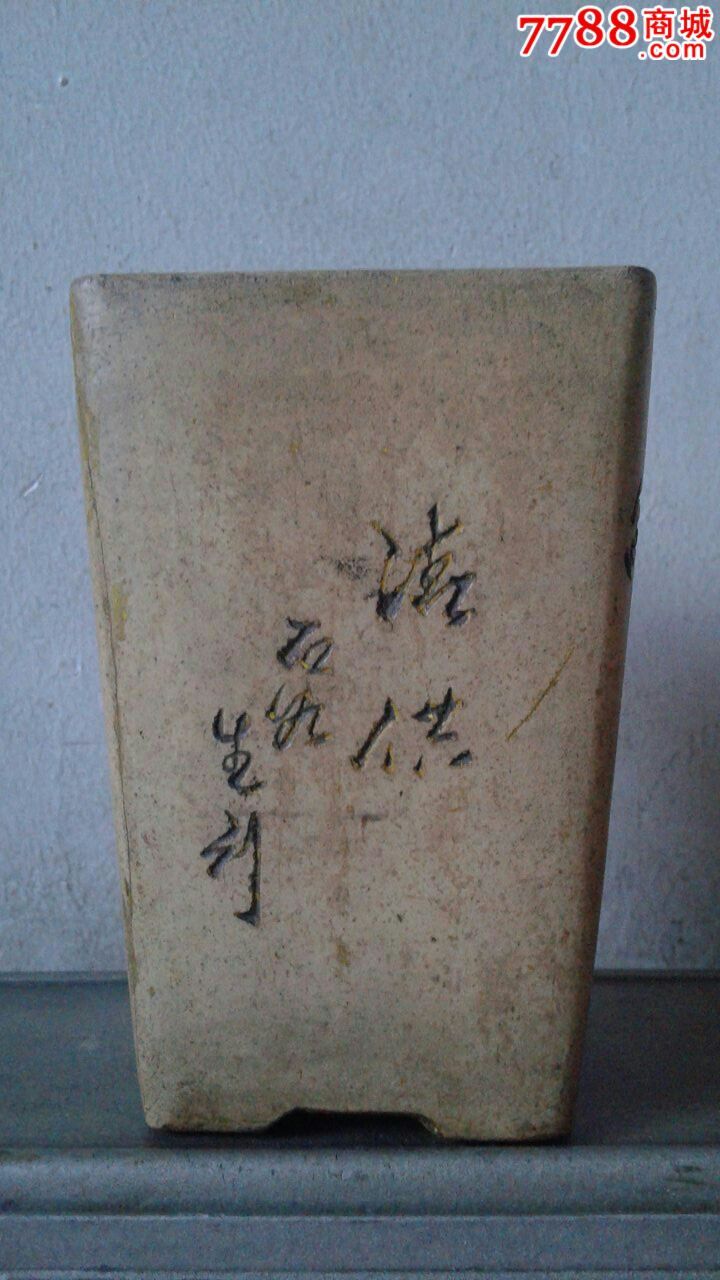 7788商城
.com
清供
石如
生刻